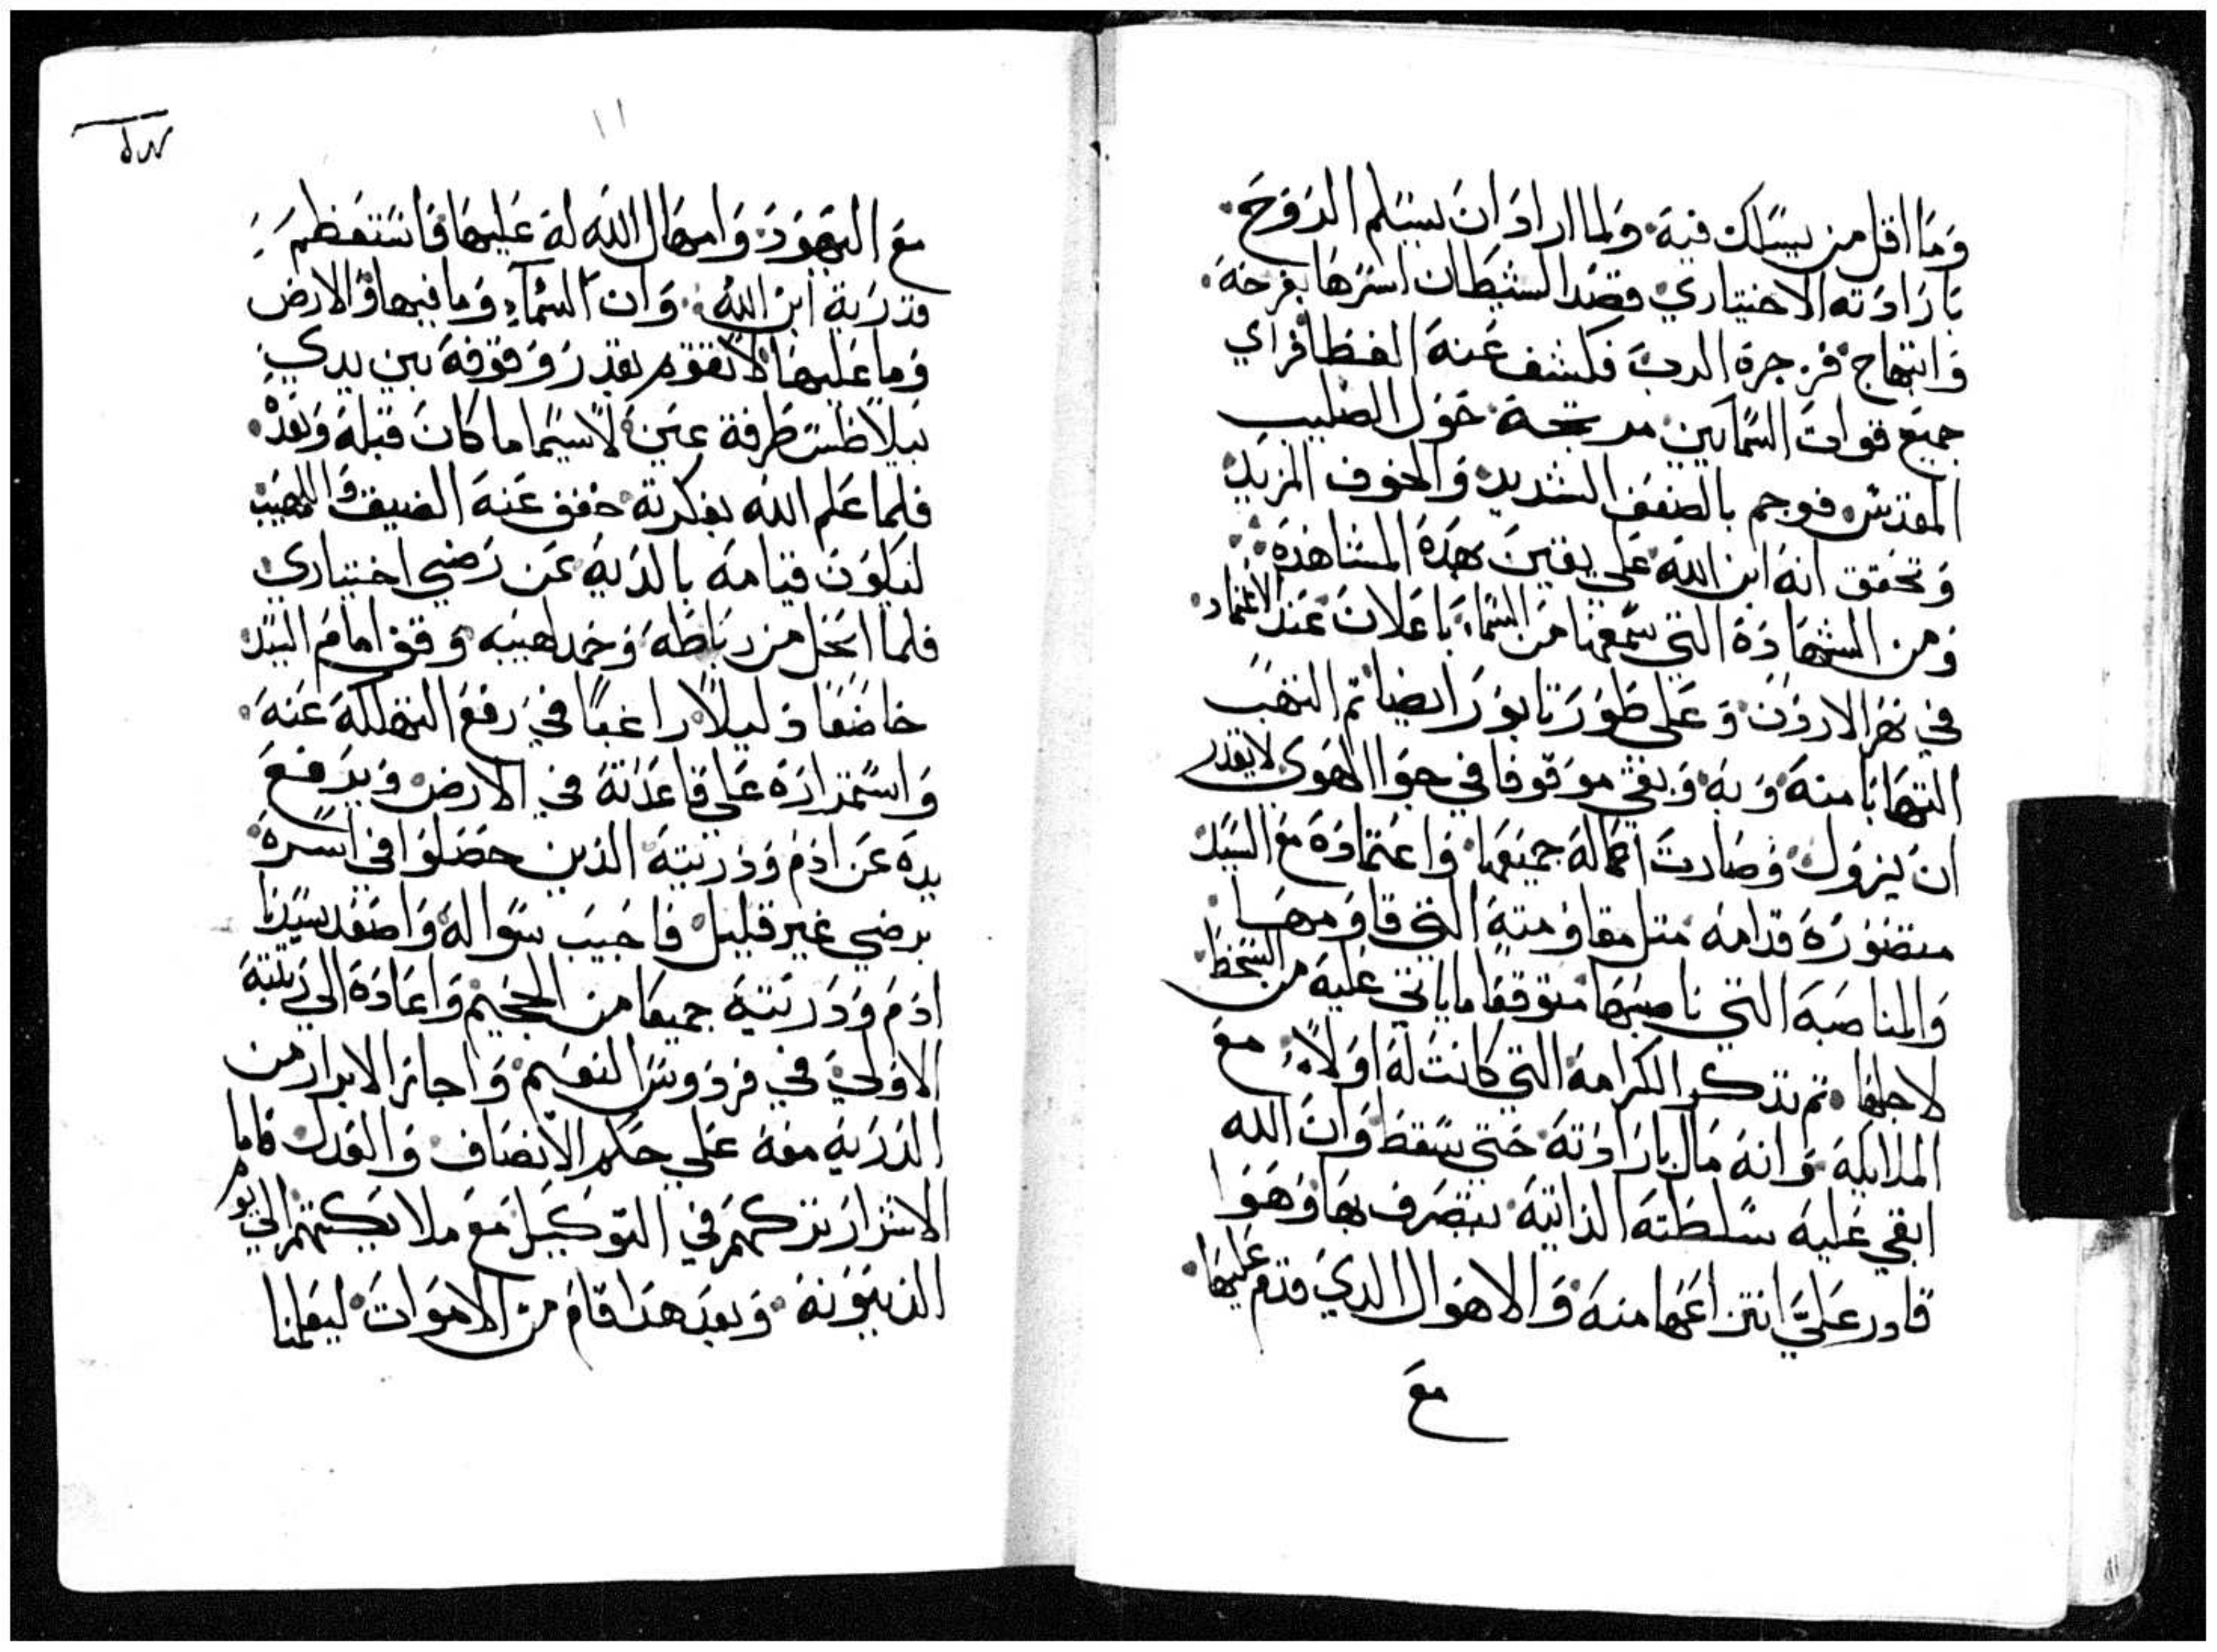 وما اقل من يسلك فيه ولما اراد ان يستلم الروح
بارادته الاختياري قصد الشيطان اسرها بفرحه
وابتهاج فزجره الرب فكشف عنه الغطا فراي
جميع قوات السمايين مدججة حول الصليب
المقدس فوجم بالضعف الشديد والخوف المزيد
وتحقق انه ابن الله علي يقين بهذه المشاهده
ومن الشهاده التي سمعها من السماء باعلان عند الاعتماد
في نهر الاردن وعلي طور تابور ايضا ثم التهب
التهابا منه وبه وبقي موقوفا في جو الهوي لا يقدر
ان يزول وصارت اعماله جميعها واعتماده مع السيد
متصوره قدامه متل مقاومته التي قاومها
والمناصبه التي ناصبها متوقعا ما ياتي عليه من السخط
لاجلها ثم تذكر الكرامه التي كانت له اولا مع
الملايكه وانه مال بارادته حتي سقط وان الله
ابقي عليه سلطته الذاتيه يتصرف بها وهوا
قادر علي انتزاعها منه والاهوال الدي قدم عليها
مع
١١
مع اليهود وامهال الله له عليها فاستعظم
قدرية ابن الله وان السماء وما فيها والارض
وما عليها لا تقوم بقدر وقوفه بين يدي
بيلاطس طرفة عين لا سيما ما كان قبله وبعده
فلما علم الله بفكرته خفف عنه الضيق واللهيب
ليكون قيامه بالديه عن رضي اختياري
فلما انحل من رباطه وخمد لهيبه وقف امام السيد
خاضعا دليلا راغبا في رفع التهلكه عنه
واستمراره علي قاعدته في الارض ويرفع
يده عن ادم وذريته الذين حصلوا في اسره
برضي غير قليل فاجيب سواله واصعد سيدنا
ادم وذريته جميعا من الجحيم واعاده الي رتبته
الاولي في فردوس النعيم واجاز الابرار من
الذريه معه علي حكم الانصاف والعدل فاما
الاشرار تركهم في التوكيل مع ملايكتهم الي يوم
الدينونه وبعد هذا قام من الاموات ليعلمنا